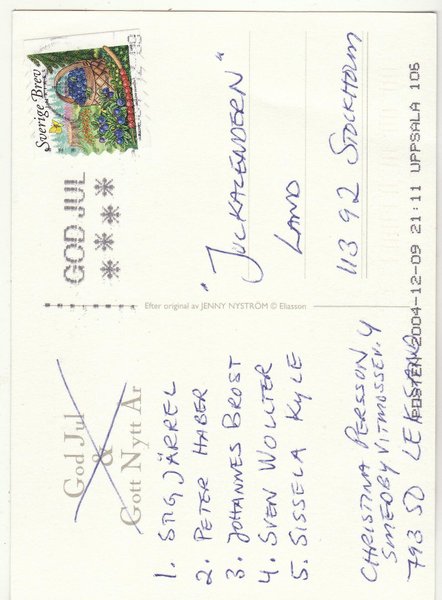 God Jul
&
Gott Nytt År
1. STIG JÄRREL
2. PETER HABER
3. JOHANNES BROST
4. SVEN WOLLTER
5. SISSELA KYLE
CHRISTINA PERSSON
793 50 LEKSAND
Efter original av JENNY NYSTRÖM © Eliasson
Sverige Brev
GOD JUL
"JULKALENDERN"
LAND
113 92 STOCKHOLM
POSTEN 2004-12-09 21:11 UPPSALA 106